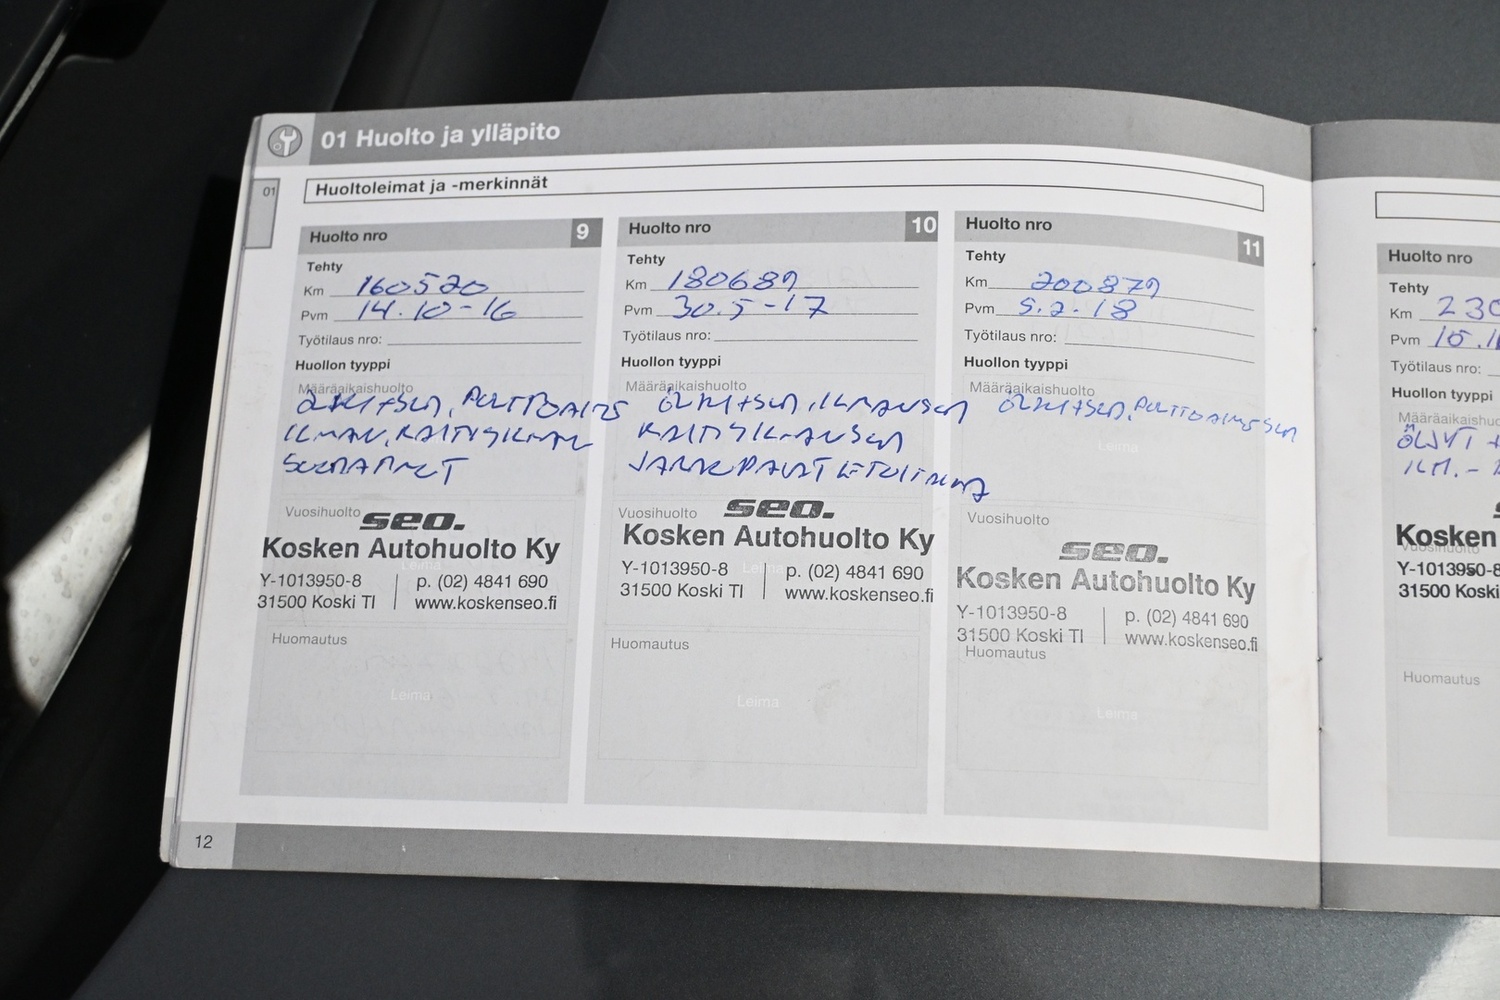 01 Huolto ja ylläpito
01
Huoltoleimat ja -merkinnät
Huolto nro 9
Tehty
Km 160520
Pvm 14.10-16
Työtilaus nro:
Huollon tyyppi
Määräaikaishuolto
ÖLJYT+SUOD, POLTTOAINE
ILMAN, RAITISILMAN
SUODATTIMET
Vuosihuolto
seo.
Kosken Autohuolto Ky
Leima
Y-1013950-8 p. (02) 4841 690
31500 Koski Tl www.koskenseo.fi
Huomautus
Leima
Huolto nro 10
Tehty
Km 180689
Pvm 30.5-17
Työtilaus nro:
Huollon tyyppi
Määräaikaishuolto
ÖLJYT+SUOD, ILMANSUOD
RAITISILMANSUOD
JARRUPALAT ETU
Vuosihuolto
seo.
Kosken Autohuolto Ky
Leima
Y-1013950-8 p. (02) 4841 690
31500 Koski Tl www.koskenseo.fi
Huomautus
Leima
Huolto nro 11
Tehty
Km 200879
Pvm 5.2.18
Työtilaus nro:
Huollon tyyppi
Määräaikaishuolto
ÖLJYT+SUOD, POLTTOAINESUOD
Leima
Vuosihuolto
seo.
Kosken Autohuolto Ky
Y-1013950-8 p. (02) 4841 690
31500 Koski Tl www.koskenseo.fi
Huomautus
Leima
12
Huolto nro
Tehty
Km 230
Pvm 15.1
Työtilaus nro:
Huollon tyyppi
Määräaikaishuo
ÖLJYT +
ILM.-
Kosken
Vuosihuolto
Y-1013950-8
31500 Koski
Huomautus